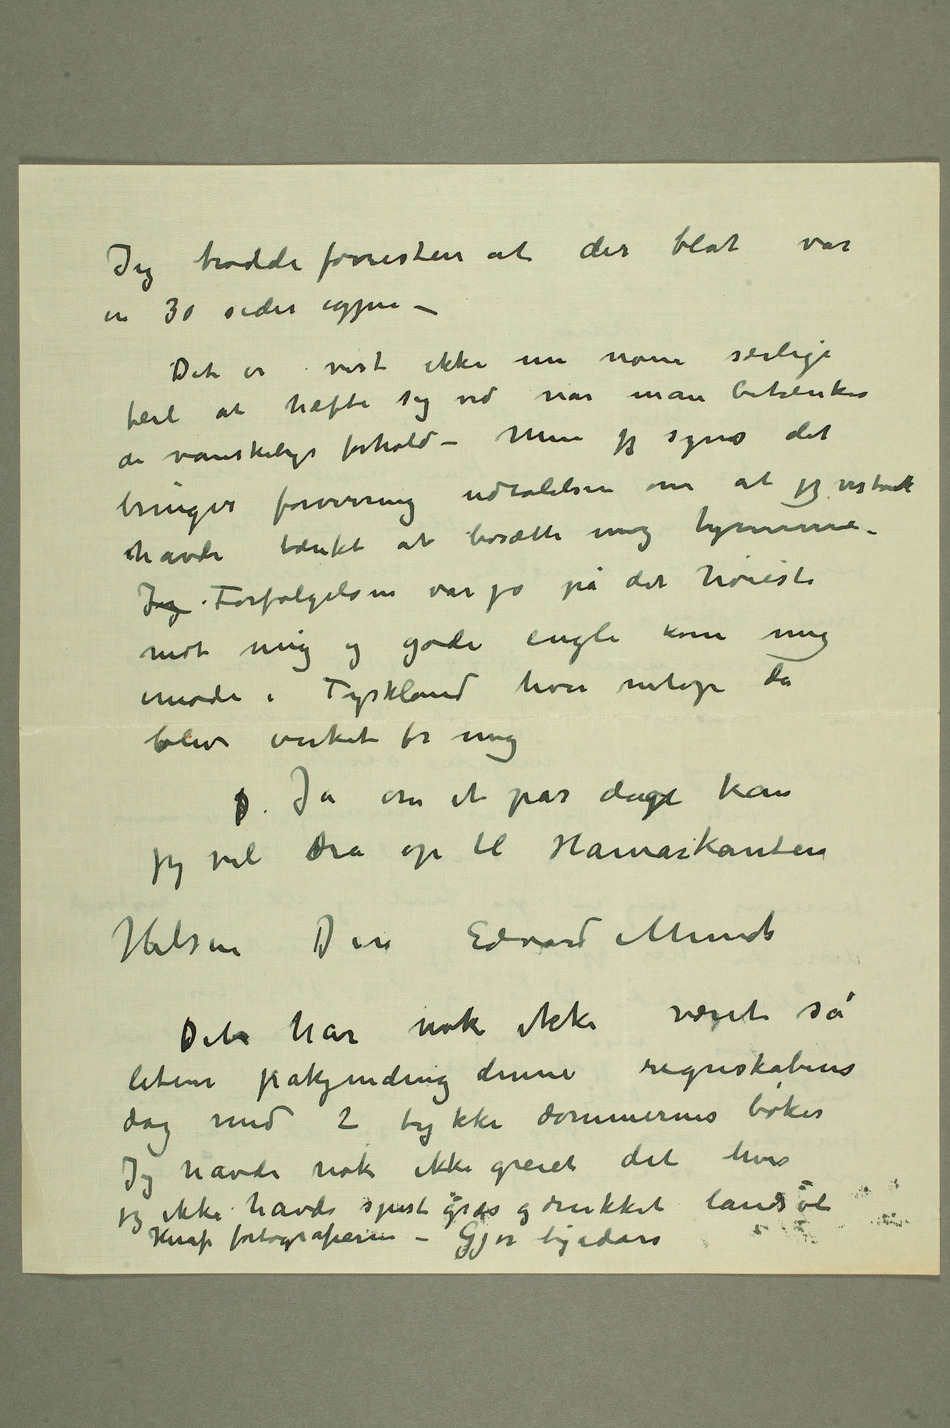 Jeg trodde forresten at det blot var
en 30 sider igjen –
Det er vist ikke nu noen særlige
feil at hæfte sig ved når man betænker
de vanskelige forhold – Men jeg synes det
bringer forvirring udtalelsen om at jeg
havde tænkt at bosætte mig hjemme –
Jeg Forfølgelsen var jo på det høieste
mot mig og gode engle kom mig
imøde i Tyskland hvor netop da
blev virket for mig
Ja om et par dage kan
jeg vel dra op til Hamarkanten
Hilsen Din Edvard Munch
Det har nok ikke været så
liten påkjending denne regnskabens
dag med 2 tykke dommernes bøker
Jeg havde nok ikke greiet det hvis
jeg ikke havde spist græs og drukket landsøl
Knap fortografierne – Gjør